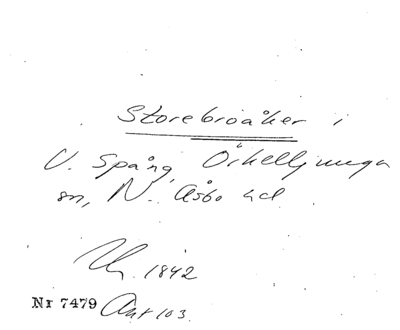 Storebroåker i
V. Spång, Örkelljunga
sn, N. Åsbo hd
1842
Nr 7479 Ant 103.